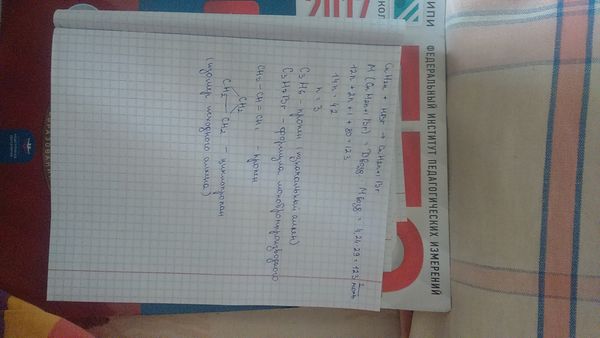 2017
ИПИ
ФЕДЕРАЛЬНЫЙ ИНСТИТУТ ПЕДАГОГИЧЕСКИХ ИЗМЕРЕНИЙ
CnH2n + HBr → CnH2n+1 Br
M (CnH2n+1Br) = Dвозд. · Mвозд = 4,24·29 = 123 г/моль
12n + 2n + 1 + 80 = 123
14n = 42
n = 3
C3H6 - пропен (исходный алкен)
C3H7Br - формула монобромпроизводного
CH3 - CH = CH2 - пропен
CH2
CH2 - CH2 - циклопропан
(изомер исходного алкена)